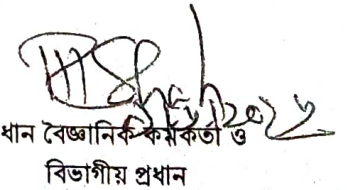 ধান বৈজ্ঞানিক কর্মকর্তা ও
বিভাগীয় প্রধান